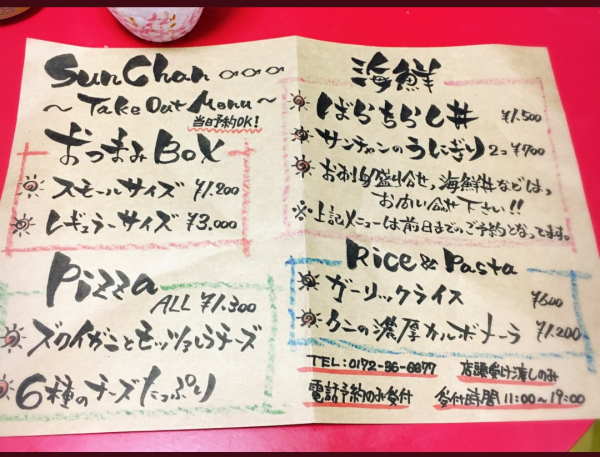 Sun Chan
～Take Out Menu～
当日予約OK!
おつまみBOX
スモールサイズ ¥1.200
レギュラーサイズ ¥3.000
Pizza
ALL ¥1.300
ズワイガニとモッツァレラチーズ
6種のチーズたっぷり
海鮮
ばらちらし丼 ¥1.500
サンチャンのうにぎり 2つ ¥700
お刺身盛り合せ、海鮮丼などは、
お問い合せ下さい!!
※上記メニューは前日までのご予約となってます。
Rice & Pasta
ガーリックライス ¥600
カニの濃厚カルボナーラ ¥1.200
TEL:0172-36-6677 店頭受け渡しのみ
電話予約のみ受付 受付時間 11:00～19:00